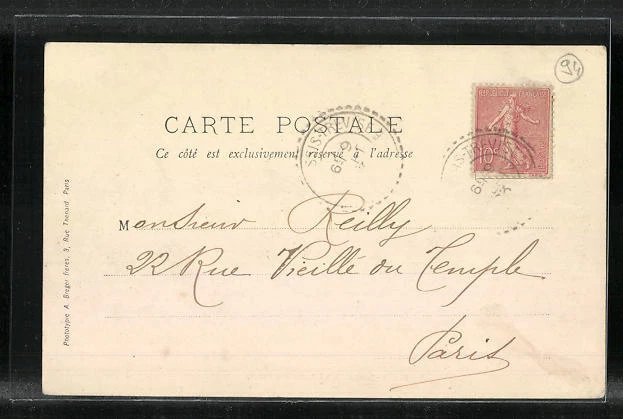 94
REPUBLIQUE FRANÇAISE
10c
CARTE POSTALE
Ce côté est exclusivement réservé à l'adresse
Monsieur Reilly
22 Rue Vieille du Temple
Paris
Phototypie A. Breger frères, 9, Rue Thenard Paris